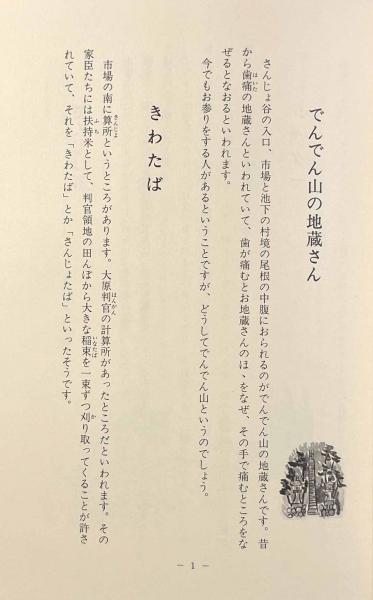 でんでん山の地蔵さん
さんじょ谷の入口、市場と池下の村境の尾根の中腹におられるのがでんでん山の地蔵さんです。昔
から歯痛の地蔵さんといわれていて、歯が痛むとお地蔵さんのほゝをなぜ、その手で痛むところをな
ぜるとなおるといわれます。
今でもお参りをする人があるということですが、どうしてでんでん山というのでしょう。
きわたば
市場の南に算所というところがあります。大原判官の計算所があったところだといわれます。その
家臣たちには扶持米として、判官領地の田んぼから大きな稲束を一束ずつ刈り取ってくることが許さ
れていて、それを「きわたば」とか「さんじょたば」といったそうです。
− 1 −